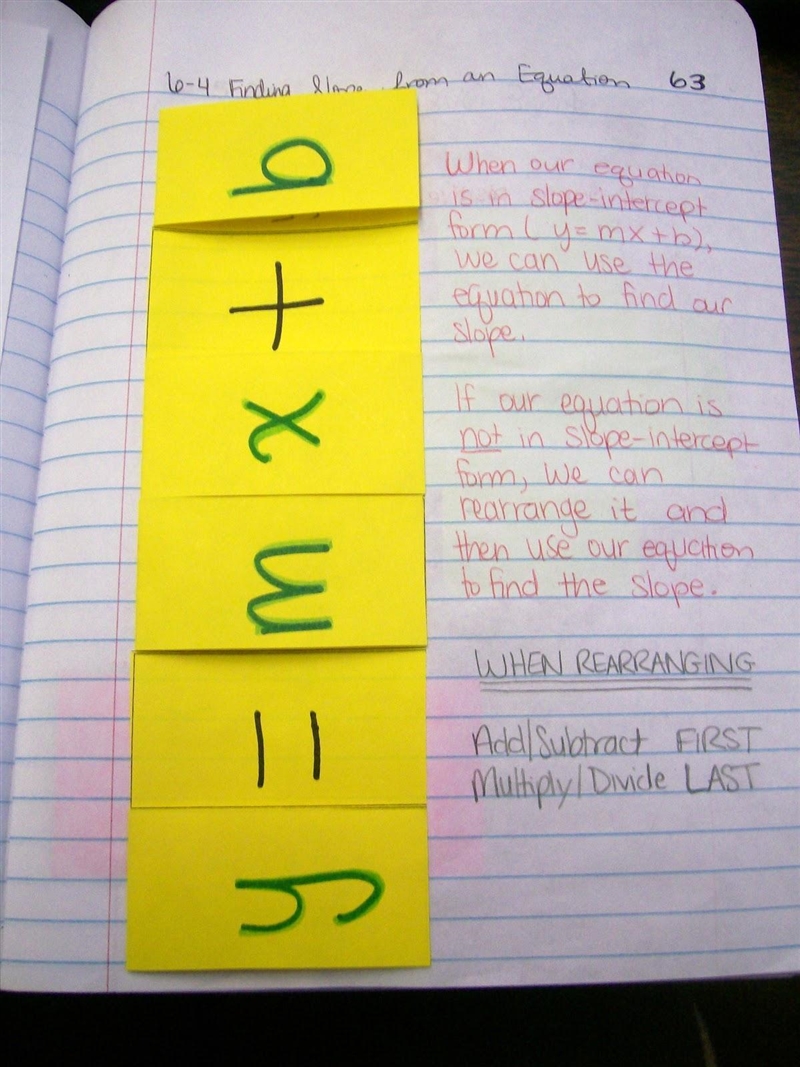 6-4 Finding Slope from an Equation 63
y = m x + b
When our equation
is in slope-intercept
form (y=mx+b),
we can use the
equation to find our
slope.
If our equation is
not in slope-intercept
form, we can
rearrange it and
then use our equation
to find the slope.
WHEN REARRANGING
Add/Subtract FIRST
Multiply/Divide LAST